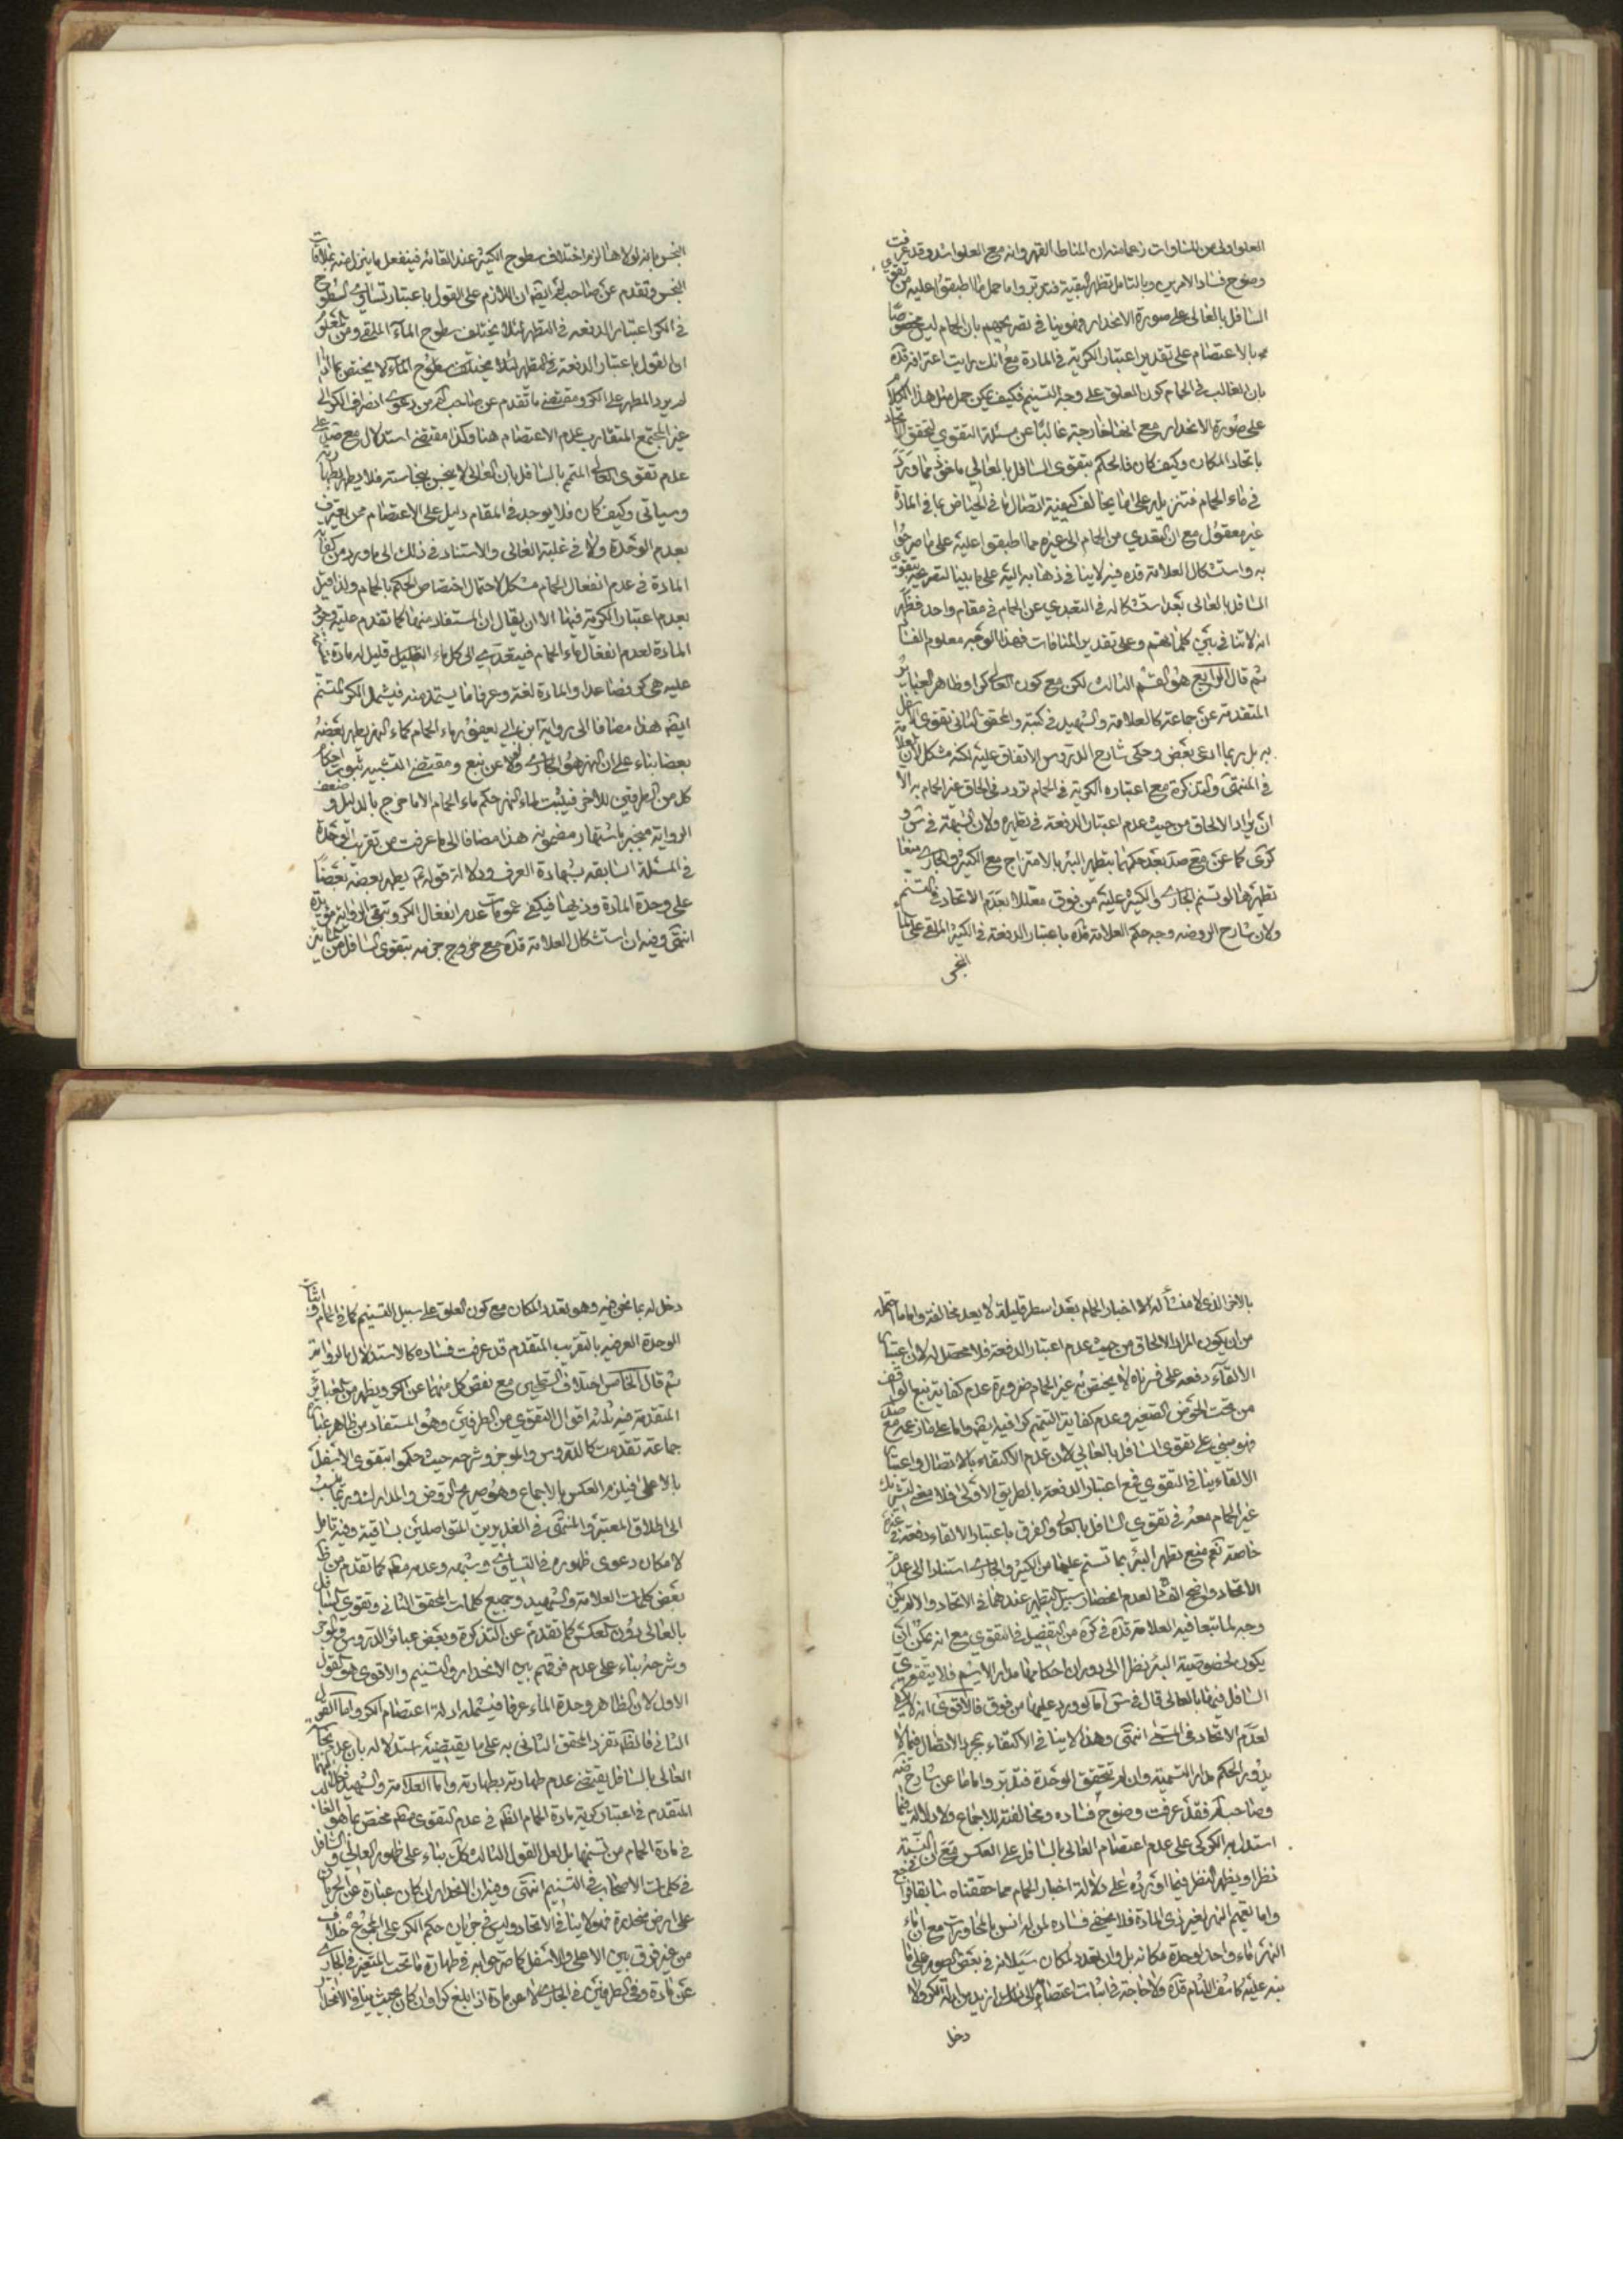 العلو اولى من المساوات زعما منه ان المناط القهر وانه مع العلو اشد وقد عرفت
وضوح فساد الامرين وبالتامل تظهر البقية فتدبر واما حمل ما اطبقوا عليه من تقوى
السافل بالعالى على صورة الانحدار فهو ينافى تصريحهم بان الحمام ليس مخصوصا
بالاعتصام على تقدير اعتبار الكرية فى المادة مع انك رايت اعترافه قده
بان الغالب فى الحمام كون العلو على وجه التسنيم فكيف يمكن حمل مثل هذا الكلام
على صورة الانحدار مع انها خارجة غالبا عن مسئلة التقوى لتحقق الاتحاد
باتحاد المكان وكيف كان فالحكم بتقوى السافل بالعالى ماخوذ مما ورد
فى ماء الحمام فتنزيله على ما يخالف كيفية اتصال ما فى الحياض بما فى المادة
غير معقول مع ان التعدى من الحمام الى غيره مما اطبقوا عليه على ما صرحوا
به واستشكال العلامة قده فيه لا ينافى ذهابه اليه على ما بينا لتصريحه بتقوى
السافل بالعالى بعد استشكاله فى التعدى عن الحمام فى مقام واحد فظهر
انه لا تنافى بين كلماتهم وعلى تقدير المنافات فهذا الوجه معلوم الفساد
ثم قال الرابع هو القسم الثالث لكن مع كون العالى كرا وظاهر العبائر
المتقدمة عن جماعة كالعلامة والشهيد فى كتبه والمحقق الثانى تقوى السافل
به بل ربما ادعى بعض وحكى شارح الدروس الاتفاق عليه لكنه مشكل لان العلامة
فى المنتهى والتذكرة مع اعتباره الكرية فى الحمام تردد فى الحاق غير الحمام به الا
ان يراد الالحاق من حيث عدم اعتبار الدفعة فى تطهيره ولان الشبهة فى ش و
كرى كما عن مع صد بعد حكمهما بتطهر البئر بالامتزاج مع الكثير والجارى منعا
تطهرها لو تسنم الجارى والكثير عليه من فوق معللا بعدم الاتحاد فى التسنم
ولان شارح الروضة وجه حكم العلامة قده باعتبار الدفعة فى الكثير الملقى على الماء
النجس
النجس بانه لولاها لزم اختلاف سطوح الكثير عند القائه فينفعل ما ينزل منه بملاقات
النجس وتقدم عن صاحب لم ايضا ان اللازم على القول باعتبار تساوى السطوح
فى الكر اعتبار الدفعة فى التطهير لئلا يختلف سطوح الماء الملقى ومن المعلوم
ان القول باعتبار الدفعة فى التطهر لئلا يختلف سطوح الماء لا يختص بما اذا
لم يرد المطهر على الكر ومقتضى ما تقدم عن صاحب لم من دعوى انصراف الكر الى
غير المجتمع المتقارب عدم الاعتصام هنا وكذا مقتضى استدلال مع صد على
عدم تقوى العالى المتمم بالسافل بان العالى لا ينجس بنجاسته فلا يطهر بطهارته
وسياتى وكيف كان فلا يوجد فى المقام دليل على الاعتصام ممن يعترف
بعدم الوحدة ولا فى غلبة العالى والاستناد فى ذلك الى ما ورد من كفاية
المادة فى عدم انفعال الحمام مشكل لاحتمال اختصاص الحكم بالحمام ولذا قيل
بعدم اعتبار الكرية فيها الا ان يقال ان المستفاد منها كما تقدم علية وجود
المادة لعدم انفعال ماء الحمام فيتعدى الى كل ماء قليل له مادة
عليه هى كر فصاعدا والمادة لغة وعرفا ما يستمد منه فيشمل الكر المتسنم
ايضا هذا مضافا الى رواية ابن ابى يعفور ماء الحمام كماء النهر يطهر بعضه
بعضا بناء على ان النهر هو الجارى ولو لا عن نبع ومقتضى التشبيه ثبوت احكام
كل من الطرفين للاخر فيثبت لماء النهر حكم ماء الحمام الا ما خرج بالدليل و ضعف
الرواية منجبر باشتهار مضمونه هذا مضافا الى ما عرفت من تقريب الوحدة
فى المسئلة السابقة بشهادة العرف ودلالة قوله ع يطهر بعضه بعضا
على وحدة المادة وذيها فيكفى عمومات عدم انفعال الكر وتبقى الرواية مؤيدة
انتهى وفيه ان استشكال العلامة قده مع خروج جزمه بتقوى السافل من
بالاخر الذى لا منشأ له الا اخبار الحمام بعد اسطر قليلة لا يعد مخالفة واما ما احتمله
من ان يكون المراد الالحاق من حيث عدم اعتبار الدفعة فلا محصل له لان اعتبار
الالقاء دفعة على فرضه لا يختص به غير الحمام ضرورة عدم كفاية نبع الواقف
من تحت الحوض الصغير وعدم كفاية التتميم كرا فيه ايضا واما على ما زعمه مع صد
فهو مبنى على تقوى السافل بالعالى لان عدم الاكتفاء بالاتصال واعتبار
الالقاء ينافى التقوى فمع اعتبار الدفعة بالطريق الاولى فلا معنى لتشريك
غير الحمام معه فى تقوى السافل بالعالى والفرق باعتبار الالقاء دفعة فى غيره
خاصة نعم منع تطهر البئر بما تسنم عليها من الكثير والجارى استنادا الى عدم
الاتحاد واضح الفساد لعدم انحصار سبيل التطهير عندهما فى الاتحاد والا لم يكن
وجه لما تبعا فيه العلامة قده فى كره من التفصيل فى التقوى مع انه يمكن ان
يكون لخصوصية البئر نظرا الى دوران احكامها مدار الاسم فلا يتقوى
السافل فيها بالعالى قال فى ش اما لو ورد عليها من فوق فالاقوى انه لا يكفى
لعدم الاتحاد فى المسمى انتهى وهذا لا ينافى الاكتفاء بمجرد الاتصال فيما لا
يدور الحكم مدار التسمية وان لم تتحقق الوحدة فتدبر واما ما عن شارح ضه
وصاحب لم فقد عرفت وضوح فساده ومخالفته للاجماع ولا دلالة فيما
استدل به الكركى على عدم اعتصام العالى بالسافل على العكس مع ان النسبة
نظرا ويظهر النظر فيما اورده على دلالة اخبار الحمام مما حققناه سابقا فراجع
واما تعميم النهر لغير ذى المادة فلا يخفى فساده لمن له انس بالمحاورات مع ان ماء
النهر ماء واحد لوحدة مكانه بل وان تعدد مكان سيلانه فى بعض الصور على ما
نبه عليه كاشف اللثام قده ولا حاجة فى اثبات اعتصامه الى ازيد من ادلة الكر ولا
دخل
دخل له بما نحن فيه وهو تعدد المكان مع كون العلو على سبيل التسنيم كما فى الحمام واثبات
الوحدة العرفية بالتقريب المتقدم قد عرفت فساده كالاستدلال بالرواية
ثم قال الخامس اختلاف السطحين مع نقص كل منهما عن الكر ويظهر من العبائر
المتقدمة فيه ثلثة اقوال التقوى من الطرفين وهو المستفاد من ظاهر عبائر
جماعة تقدمت كالدروس والموجز وشرحه حيث حكموا بتقوى الاسفل
بالاعلى فيلزم العكس بالاجماع وهو صريح الروض والمدارك وربما ينسب
الى اطلاق المعتبر والمنتهى فى الغديرين المتواصلين بساقية وفيه تامل
لامكان دعوى ظهوره فى التساوى وشبهه وعدمه مطلقا كما تقدم من ظاهر
بعض كلمات العلامة والشهيد وجميع كلمات المحقق الثانى وتقوى السافل
بالعالى دون العكس كما تقدم عن التذكرة وبعض عبائر الدروس والموجز
وشرحه بناء على عدم فرقهم بين الانحدار والتسنيم والاقوى هو القول
الاول لان الظاهر وحدة الماء عرفا فيشمله ادلة اعتصام الكر واما القول
الثانى فالظاهر تفرد المحقق الثانى به على ما يقتضيه استدلاله بان عدم نجاسة
العالى بالسافل يقتضى عدم طهارته بطهارته واما العلامة والشهيد فكلامهما
المتقدم فى اعتبار كرية مادة الحمام الظاهر فى عدم التقوى مطلقا مختص بما هو الغالب
فى مادة الحمام من تسنمها بل لعل القول الثالث كان بناء على ظهور العالى والسافل
فى كلمات الاصحاب فى التسنيم انتهى وفيه ان الانحدار ان كان عبارة عن الجريان
على ارض منحدرة فهو لا ينافى الاتحاد وليس فى جريان حكم الكر على المجموع خلاف
من غير فرق بين الاعلى والاسفل كما صرحوا به فى طهارة ما تحت المتغير فى الجارى
عن مادة وفى الطرفين فى الجارى لا عن مادة اذا بلغ كرا وان كان بحيث ينافى الاتحاد